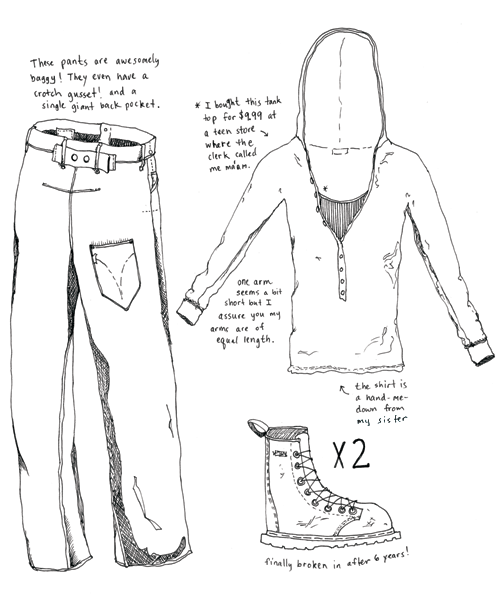 These pants are awesomely
baggy! They even have a
crotch gusset! and a
single giant back pocket.
* I bought this tank
top for $9.99 at
a teen store
where the
clerk called
me ma'am.
*
one arm
seems a bit
short but I
assure you my
arms are of
equal length.
the shirt is
a hand-me-
down from
my sister
X2
finally broken in after 6 years!